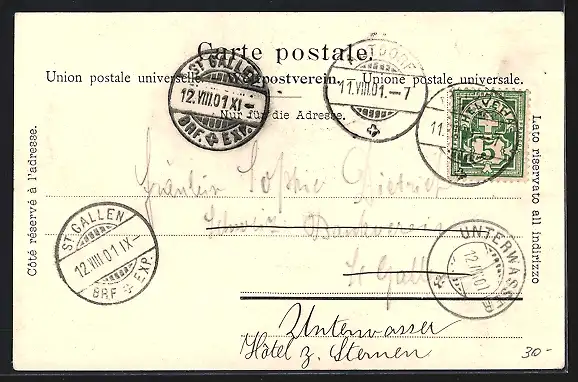 Carte postale.
Union postale universelle. Weltpostverein. Unione postale universale.
Nur für die Adresse.
Côté réservé à l'adresse.
Lato riservato all indirizzo
ST. GALLEN
12.VIII.01 XI-
BRF. EXP.
TDORF
11.VIII.01.-7
11.
HELVETIA
5
Fräulein Sophie Dietrich
Schweiz. Bankverein
St Gallen
ST. GALLEN
12.VIII.01 IX-
BRF. EXP.
UNTERWASSER
12.VIII.01
Unterwasser
Hôtel z. Sternen
30-